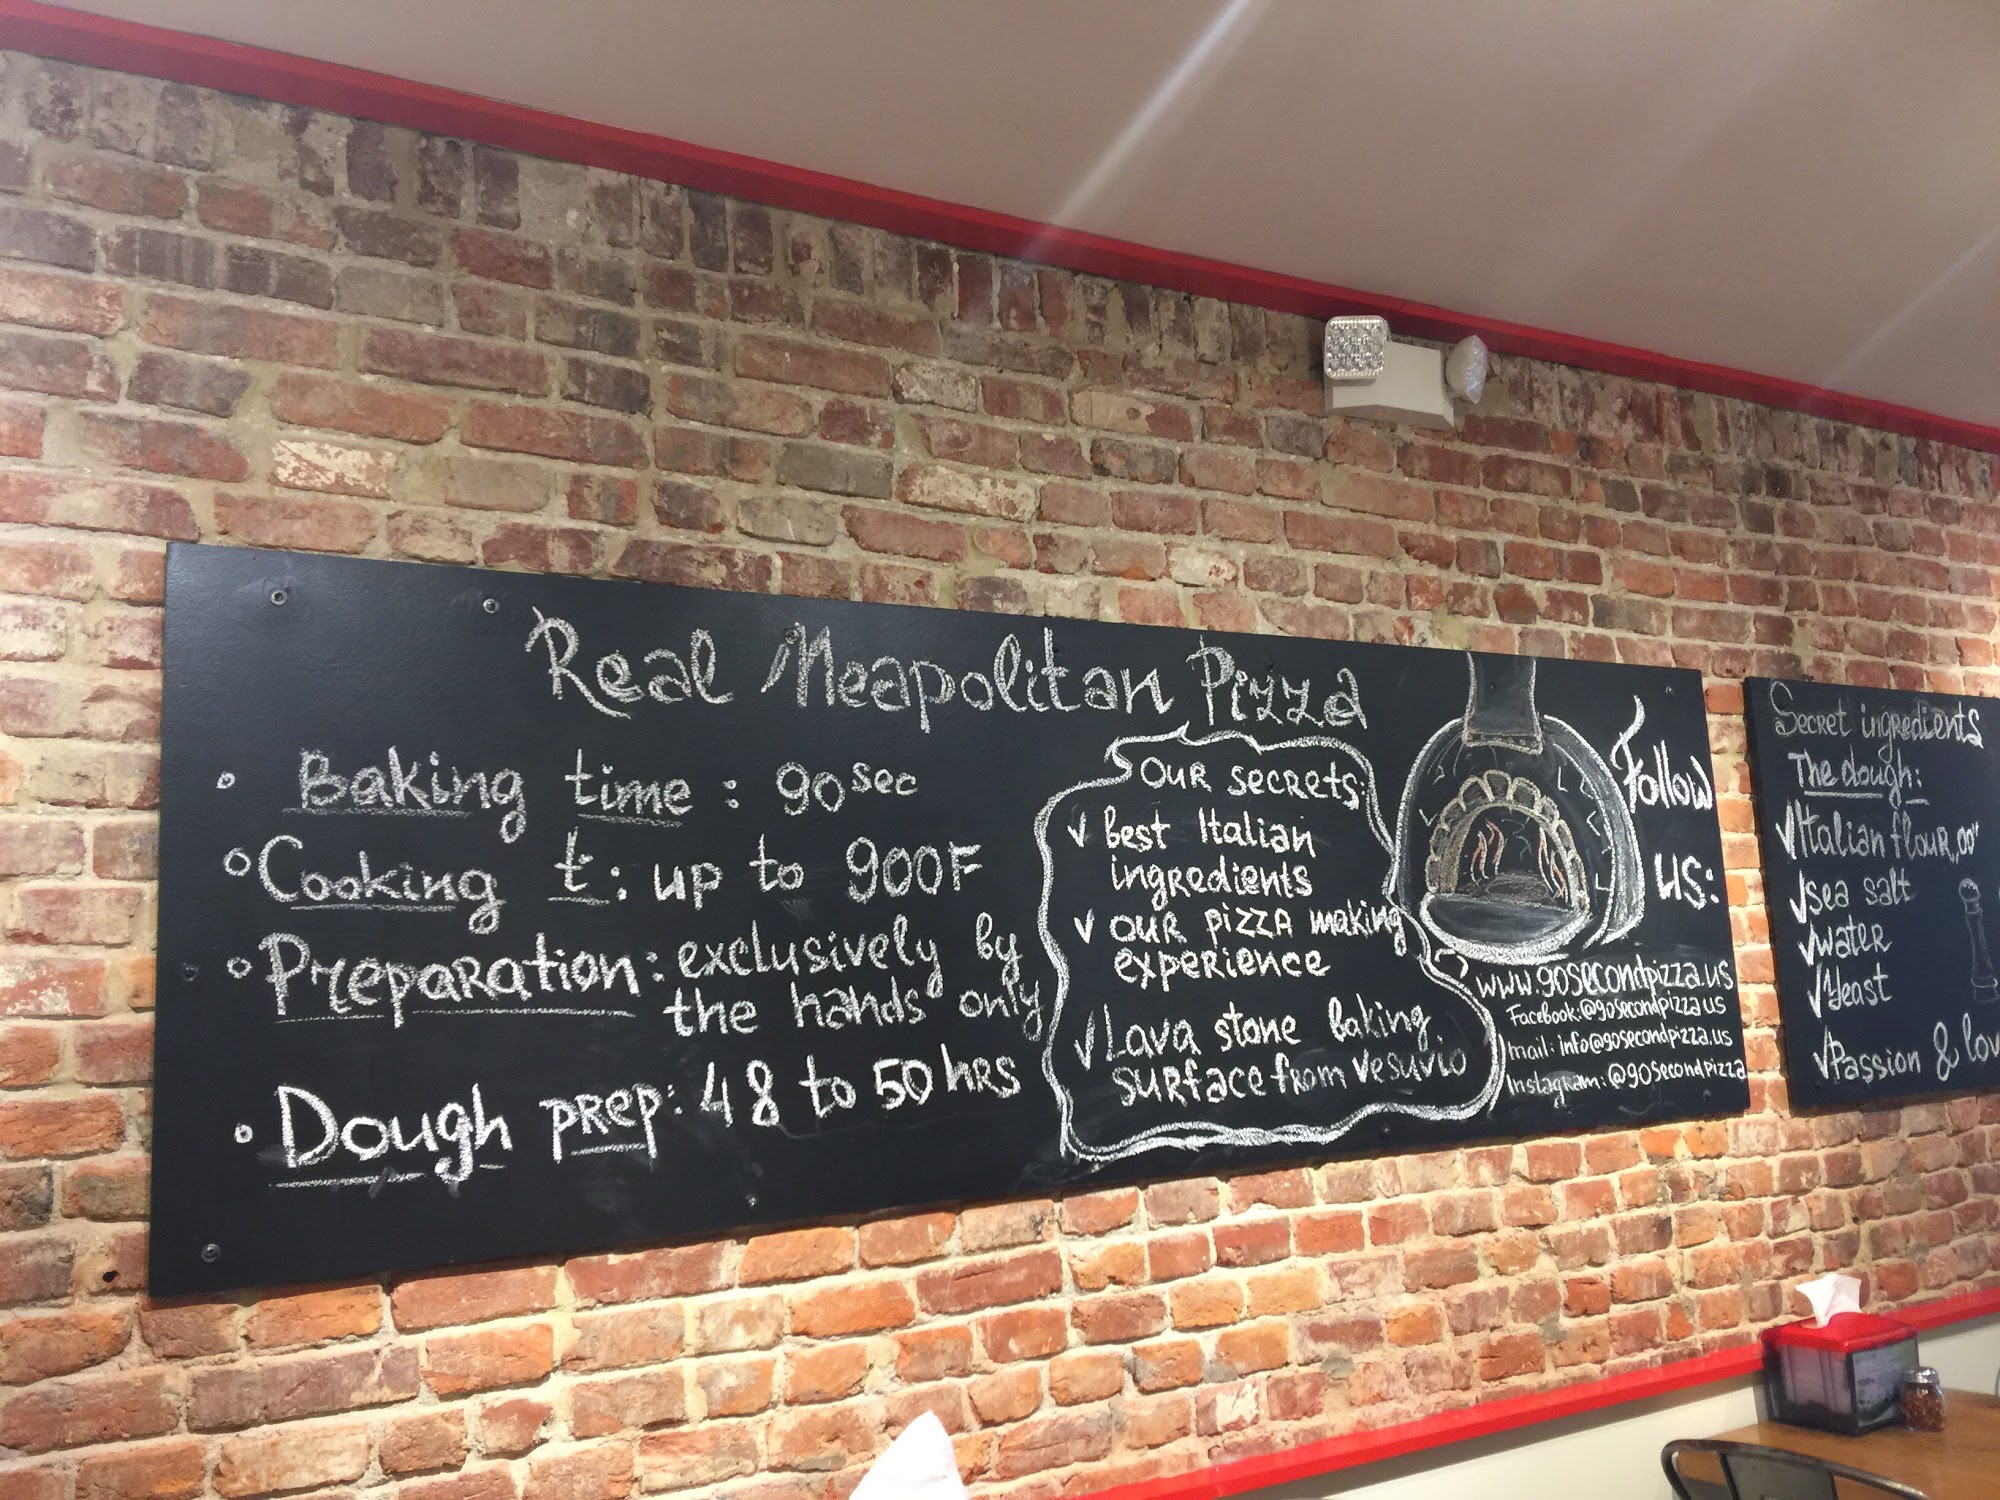 Real Neapolitan Pizza
Baking time: 90 sec
Cooking t: up to 900F
Preparation: exclusively by
the hands only
Dough prep: 48 to 50 hrs
Our secrets:
best Italian
ingredients
our pizza making
experience
Lava stone baking
surface from Vesuvio
Follow
us:
www.90secondpizza.us
Facebook:@90secondpizza.us
mail: info@90secondpizza.us
Instagram:@90secondpizza
Secret ingredients
The dough:
Italian flour,00"
sea salt
water
Yeast
Passion & lov